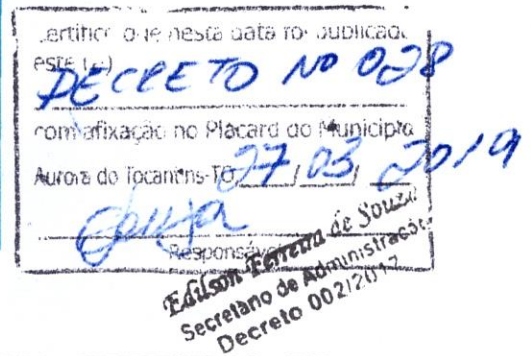 Certifico que nesta data foi publicado
este ( )
DECRETO Nº 028
com afixação no Placard do Município
Aurora do Tocantins-TO 27 / 03 / 2019
Responsável
Edilson Ferreira de Souza
Secretário de Administração
Decreto 002/2017